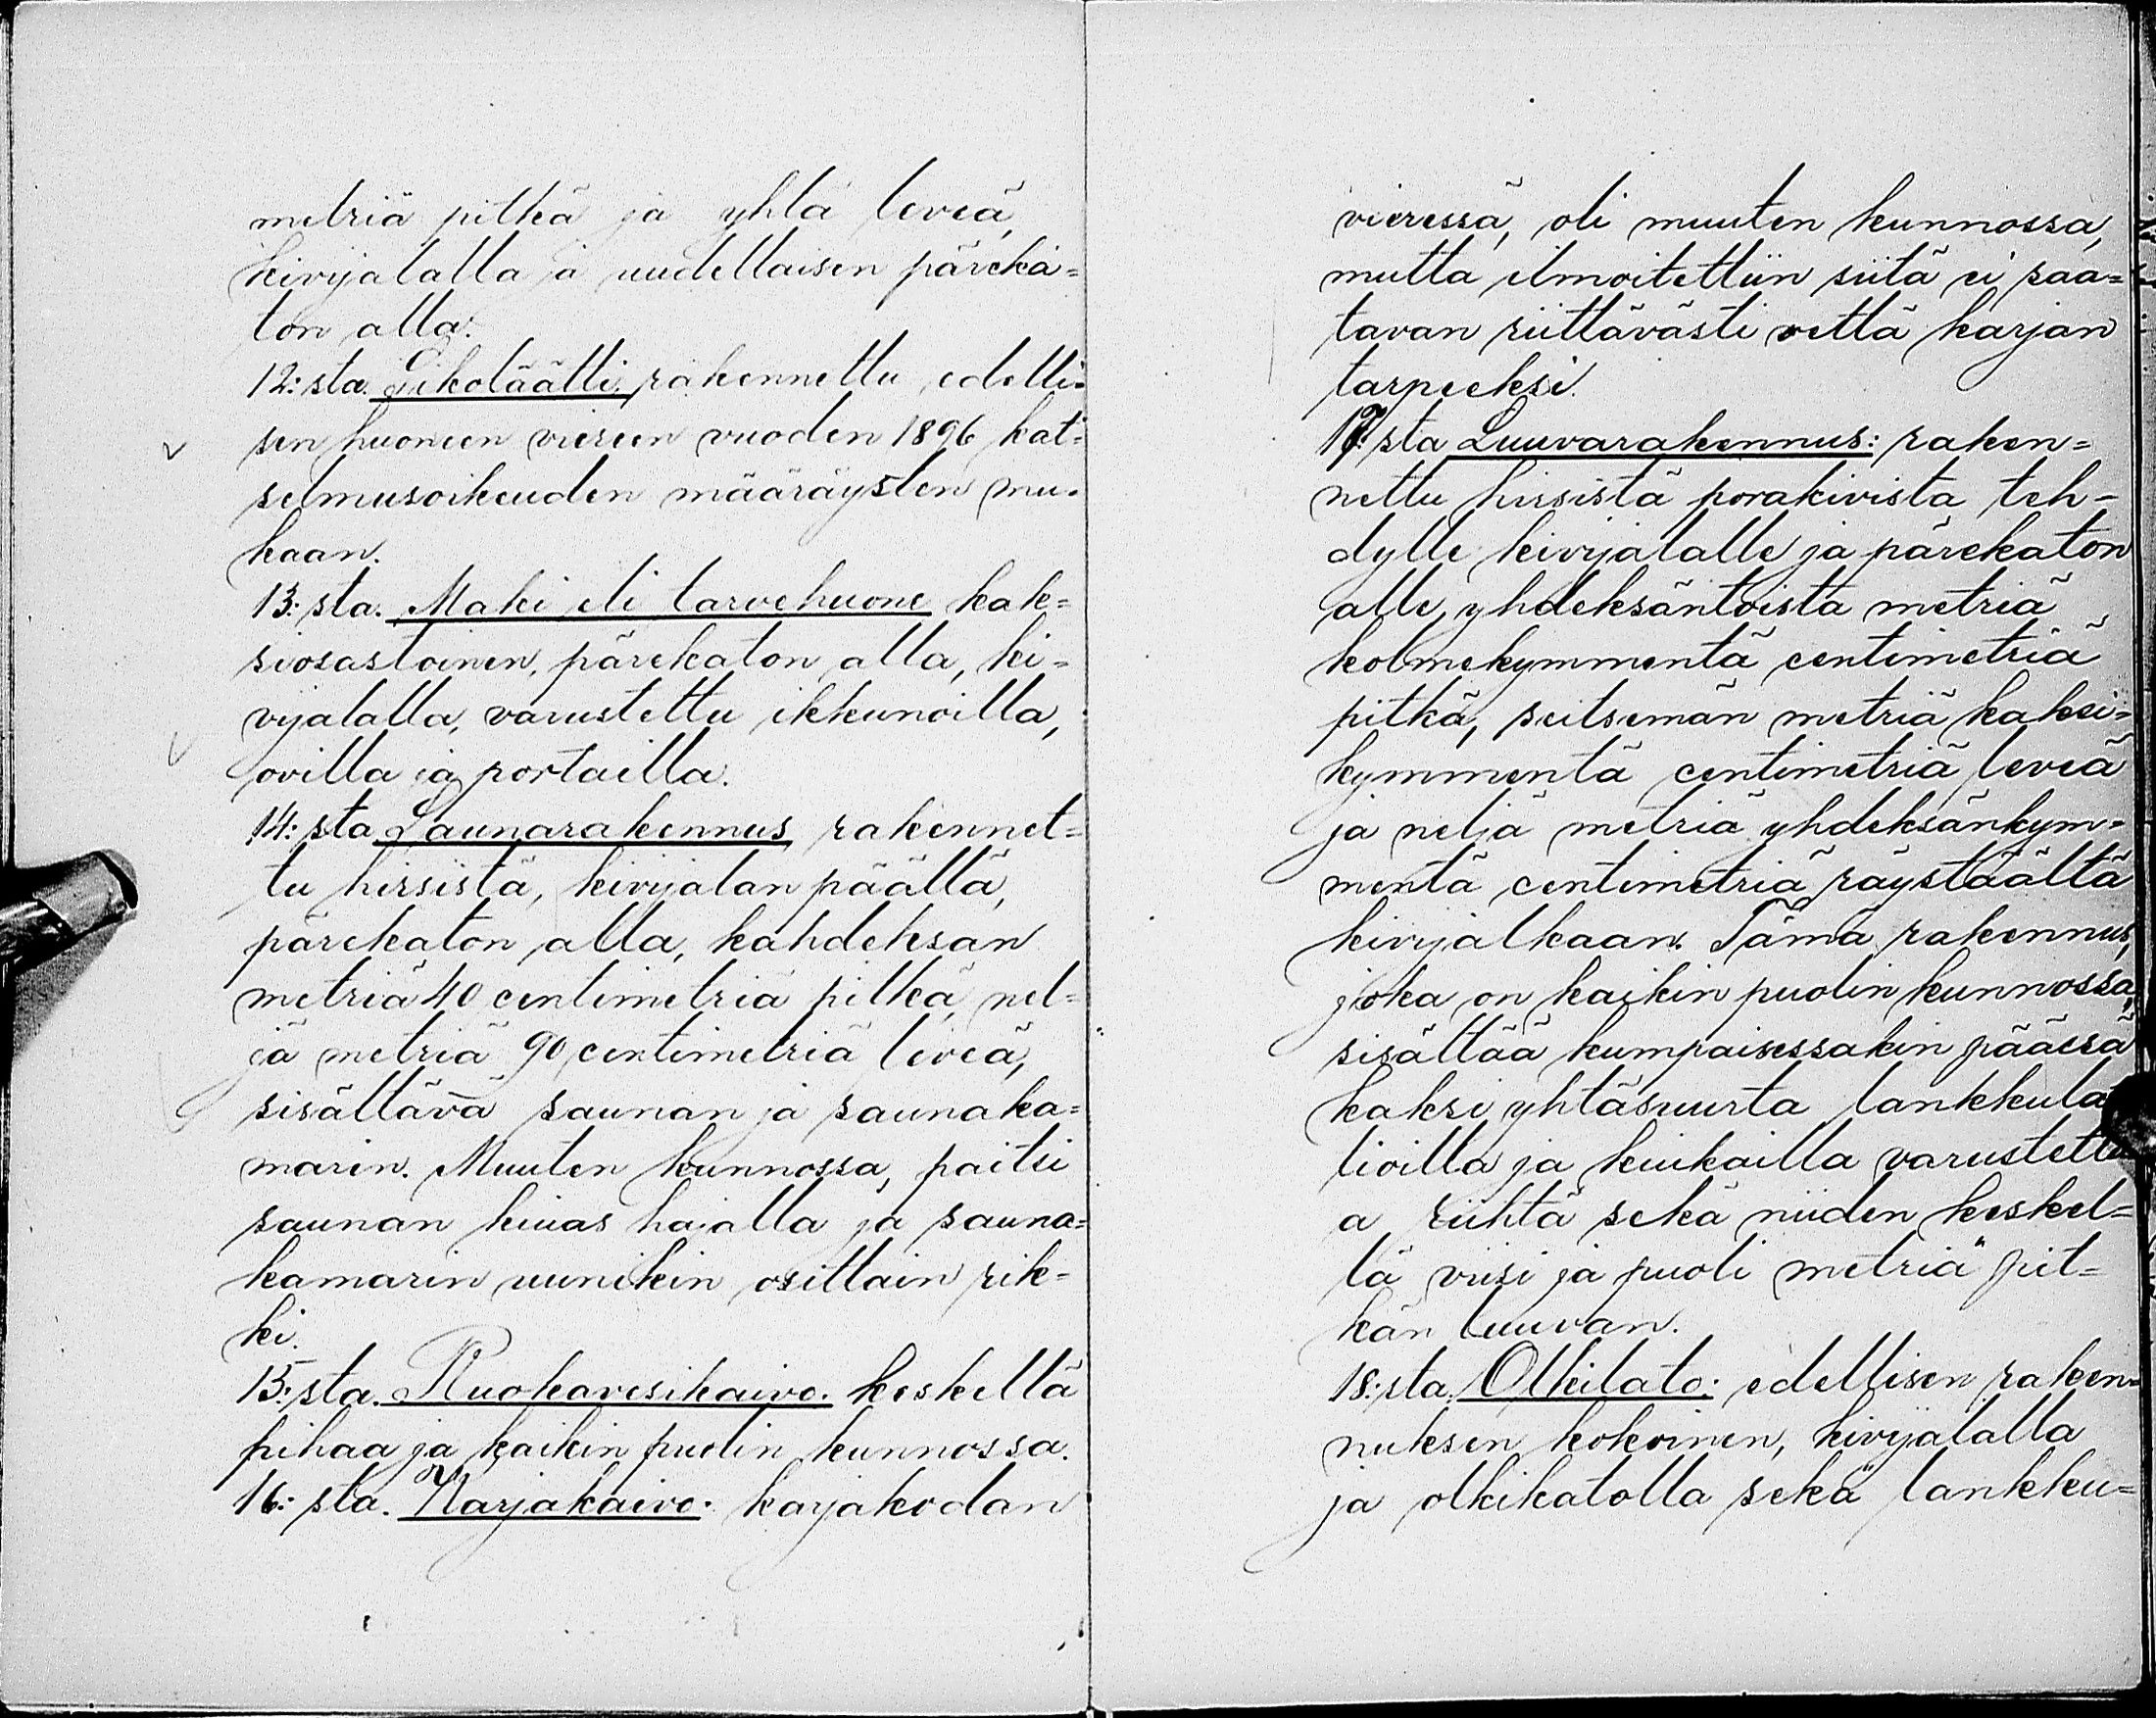 metriä pitkä ja yhtä leveä,
kivijalalla ja uudellaisen päreka=
ton alla.
12:sta. Sikoläätti, rakennettu edelli=
sen huoneen viereen vuoden 1896 kat=
selmusoikeuden määräysten mu=
kaan.
13:sta. Maki eli tarvehuone kak=
siosastoinen, pärekaton alla, ki=
vijalalla, varustettu ikkunoilla,
ovilla ja portailla.
14:sta Saunarakennus, rakennet=
tu hirsistä, kivijalan päällä,
pärekaton alla, kahdeksan
metriä 40 centimetriä pitkä, nel=
jä metriä 90 centimetriä leveä,
sisältävä saunan ja saunaka=
marin. Muuten kunnossa, paitsi
saunan kiuas hajalla ja sauna=
kamarin uunikin osittain rik=
ki.
15:sta. Ruokavesikaivo. keskellä
pihaa ja kaikin puolin kunnossa.
16:sta. Karjakaivo. karjakodan
vieressä, oli muuten kunnossa,
mutta ilmoitettiin siitä ei saa=
tavan riittävästi vettä karjan
tarpeeksi.
17:sta Luuvarakennus: raken=
nettu hirsistä porakivista teh-
dylle kivijalalle ja pärekaton
alle, yhdeksäntoista metriä
kolmekymmentä centimetriä
pitkä, seitsemän metriä kaksi=
kymmentä centimetriä leveä
ja neljä metriä yhdeksänkym=
mentä centimetriä räystäältä
kivijalkaan. Tämä rakennus,
joka on kaikin puolin kunnossa,
sisältää kumpaisessakin päässä
kaksi yhtäsuurta lankkula
tioilla ja kiukailla varustettu
a riihtä sekä niiden keskel=
lä viisi ja puoli metriä pit=
kän luuvan.
18:sta. Olkilato: edellisen raken=
nuksen kokoinen, kivijalalla
ja olkikatolla sekä lankku=